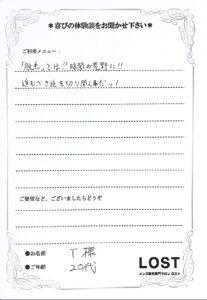 ＊喜びの体験談をお聞かせ下さい＊
ご利用メニュー：
「脱毛」とは!!暗闇の荒野に!!
進むべき道を切り開く事だッ!
ご要望など、ございましたらどうぞ
●お名前 T 様
●ご年齢 20代
LOST
メンズ脱毛専門サロン ロスト